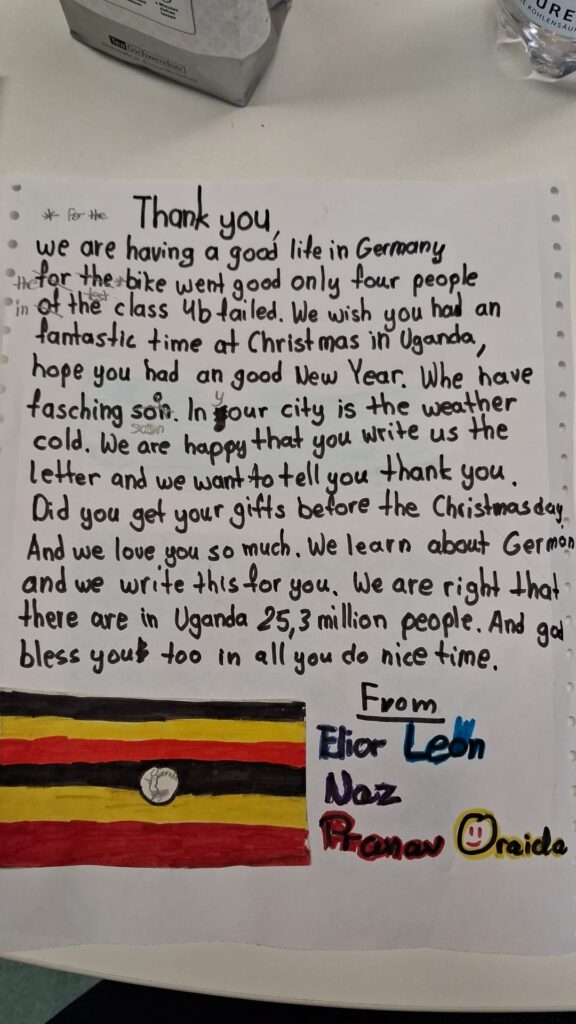 Tea Gschwendner
URE
KOHLENSÄU
* For the
Thank you,
we are having a good life in Germany
the for the * bike went good only four people
test
in of the class 4b failed. We wish you had an
fantastic time at Christmas in Uganda,
hope you had an good New Year. Whe have
fasching soon. In your city is the weather
soon
cold. We are happy that you write us the
letter and we want to tell you thank you.
Did you get your gifts before the Christmasday.
And we love you so much. We learn about German
and we write this for you. We are right that
there are in Uganda 25,3 million people. And god
bless you too in all you do nice time.
From
Elior León
Naz
Pranav Oraida